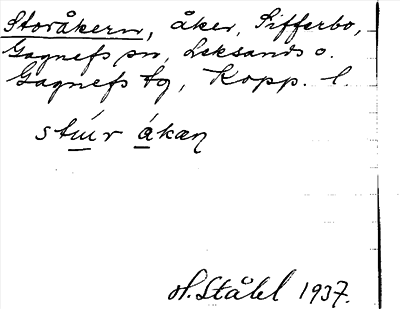 Storåkern, åker, Sifferbo,
Gagnefs sn, Leksands o.
Gagnefs tg, Kopp. l.
stúr ákaɳ
H. Ståhl 1937.